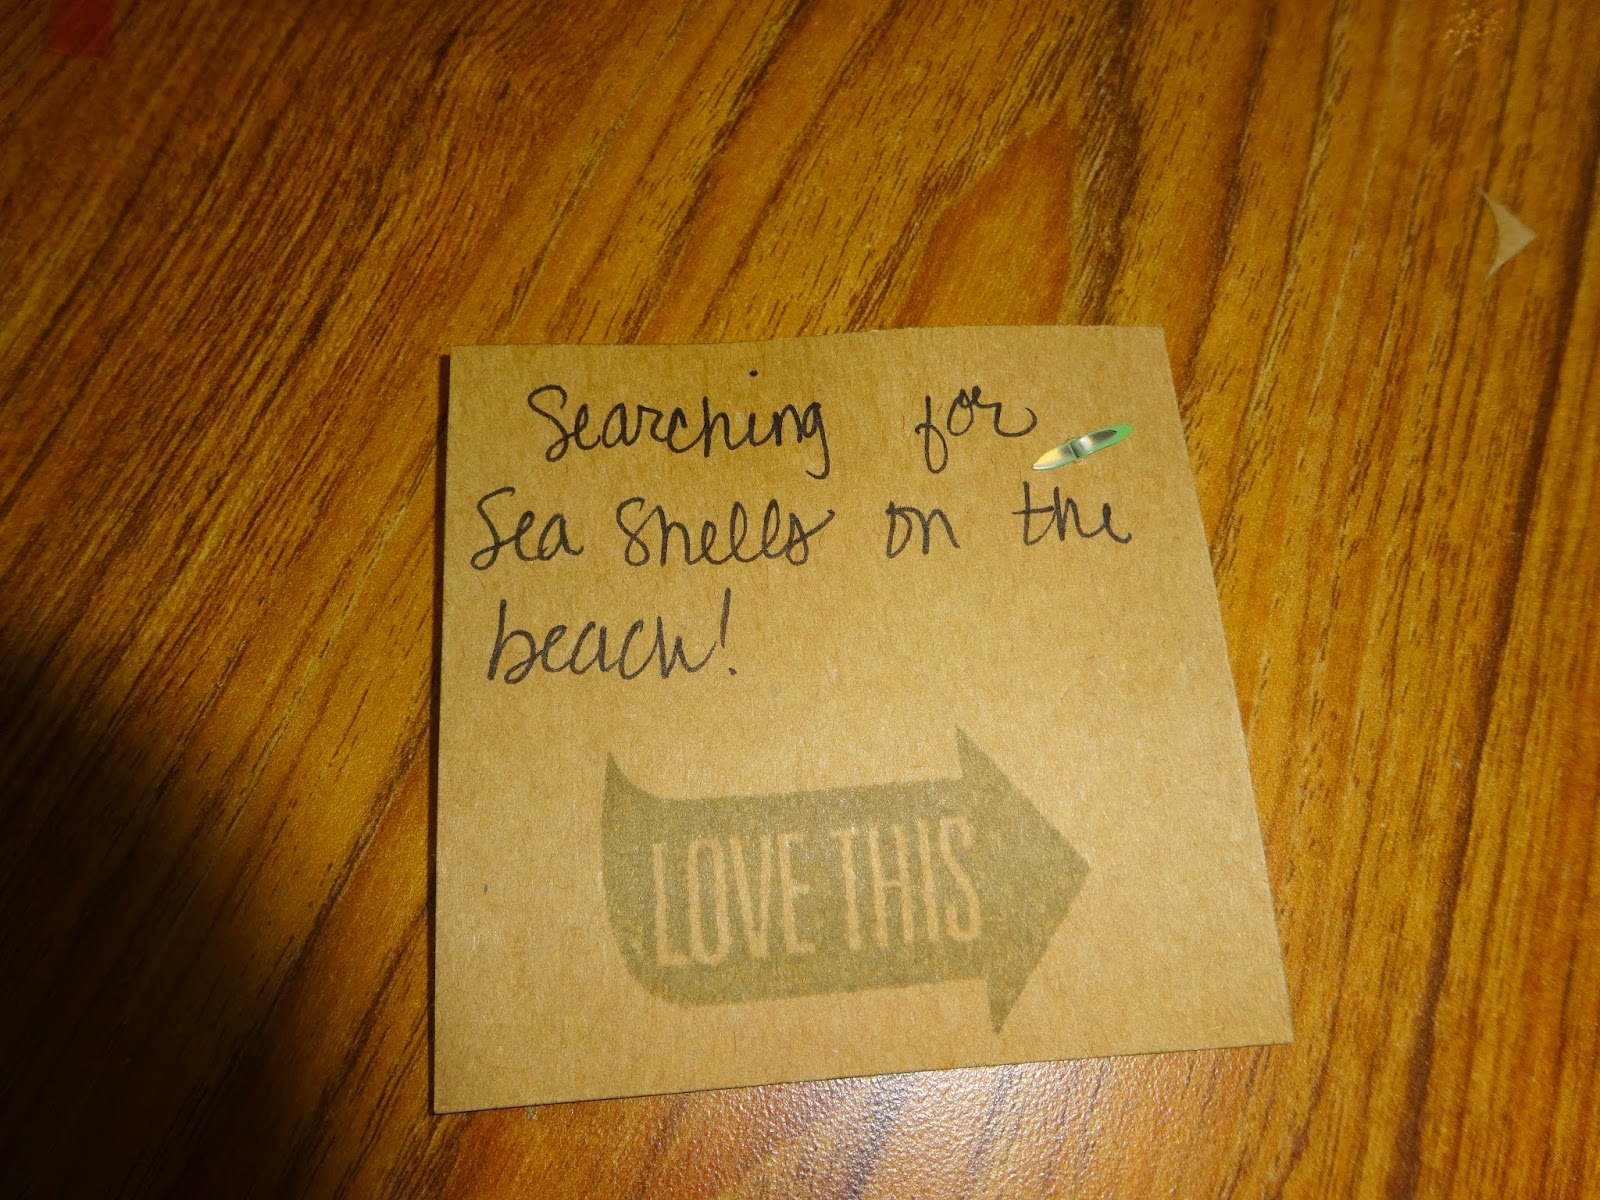 Searching for
Sea Shells on the
beach!
LOVE THIS